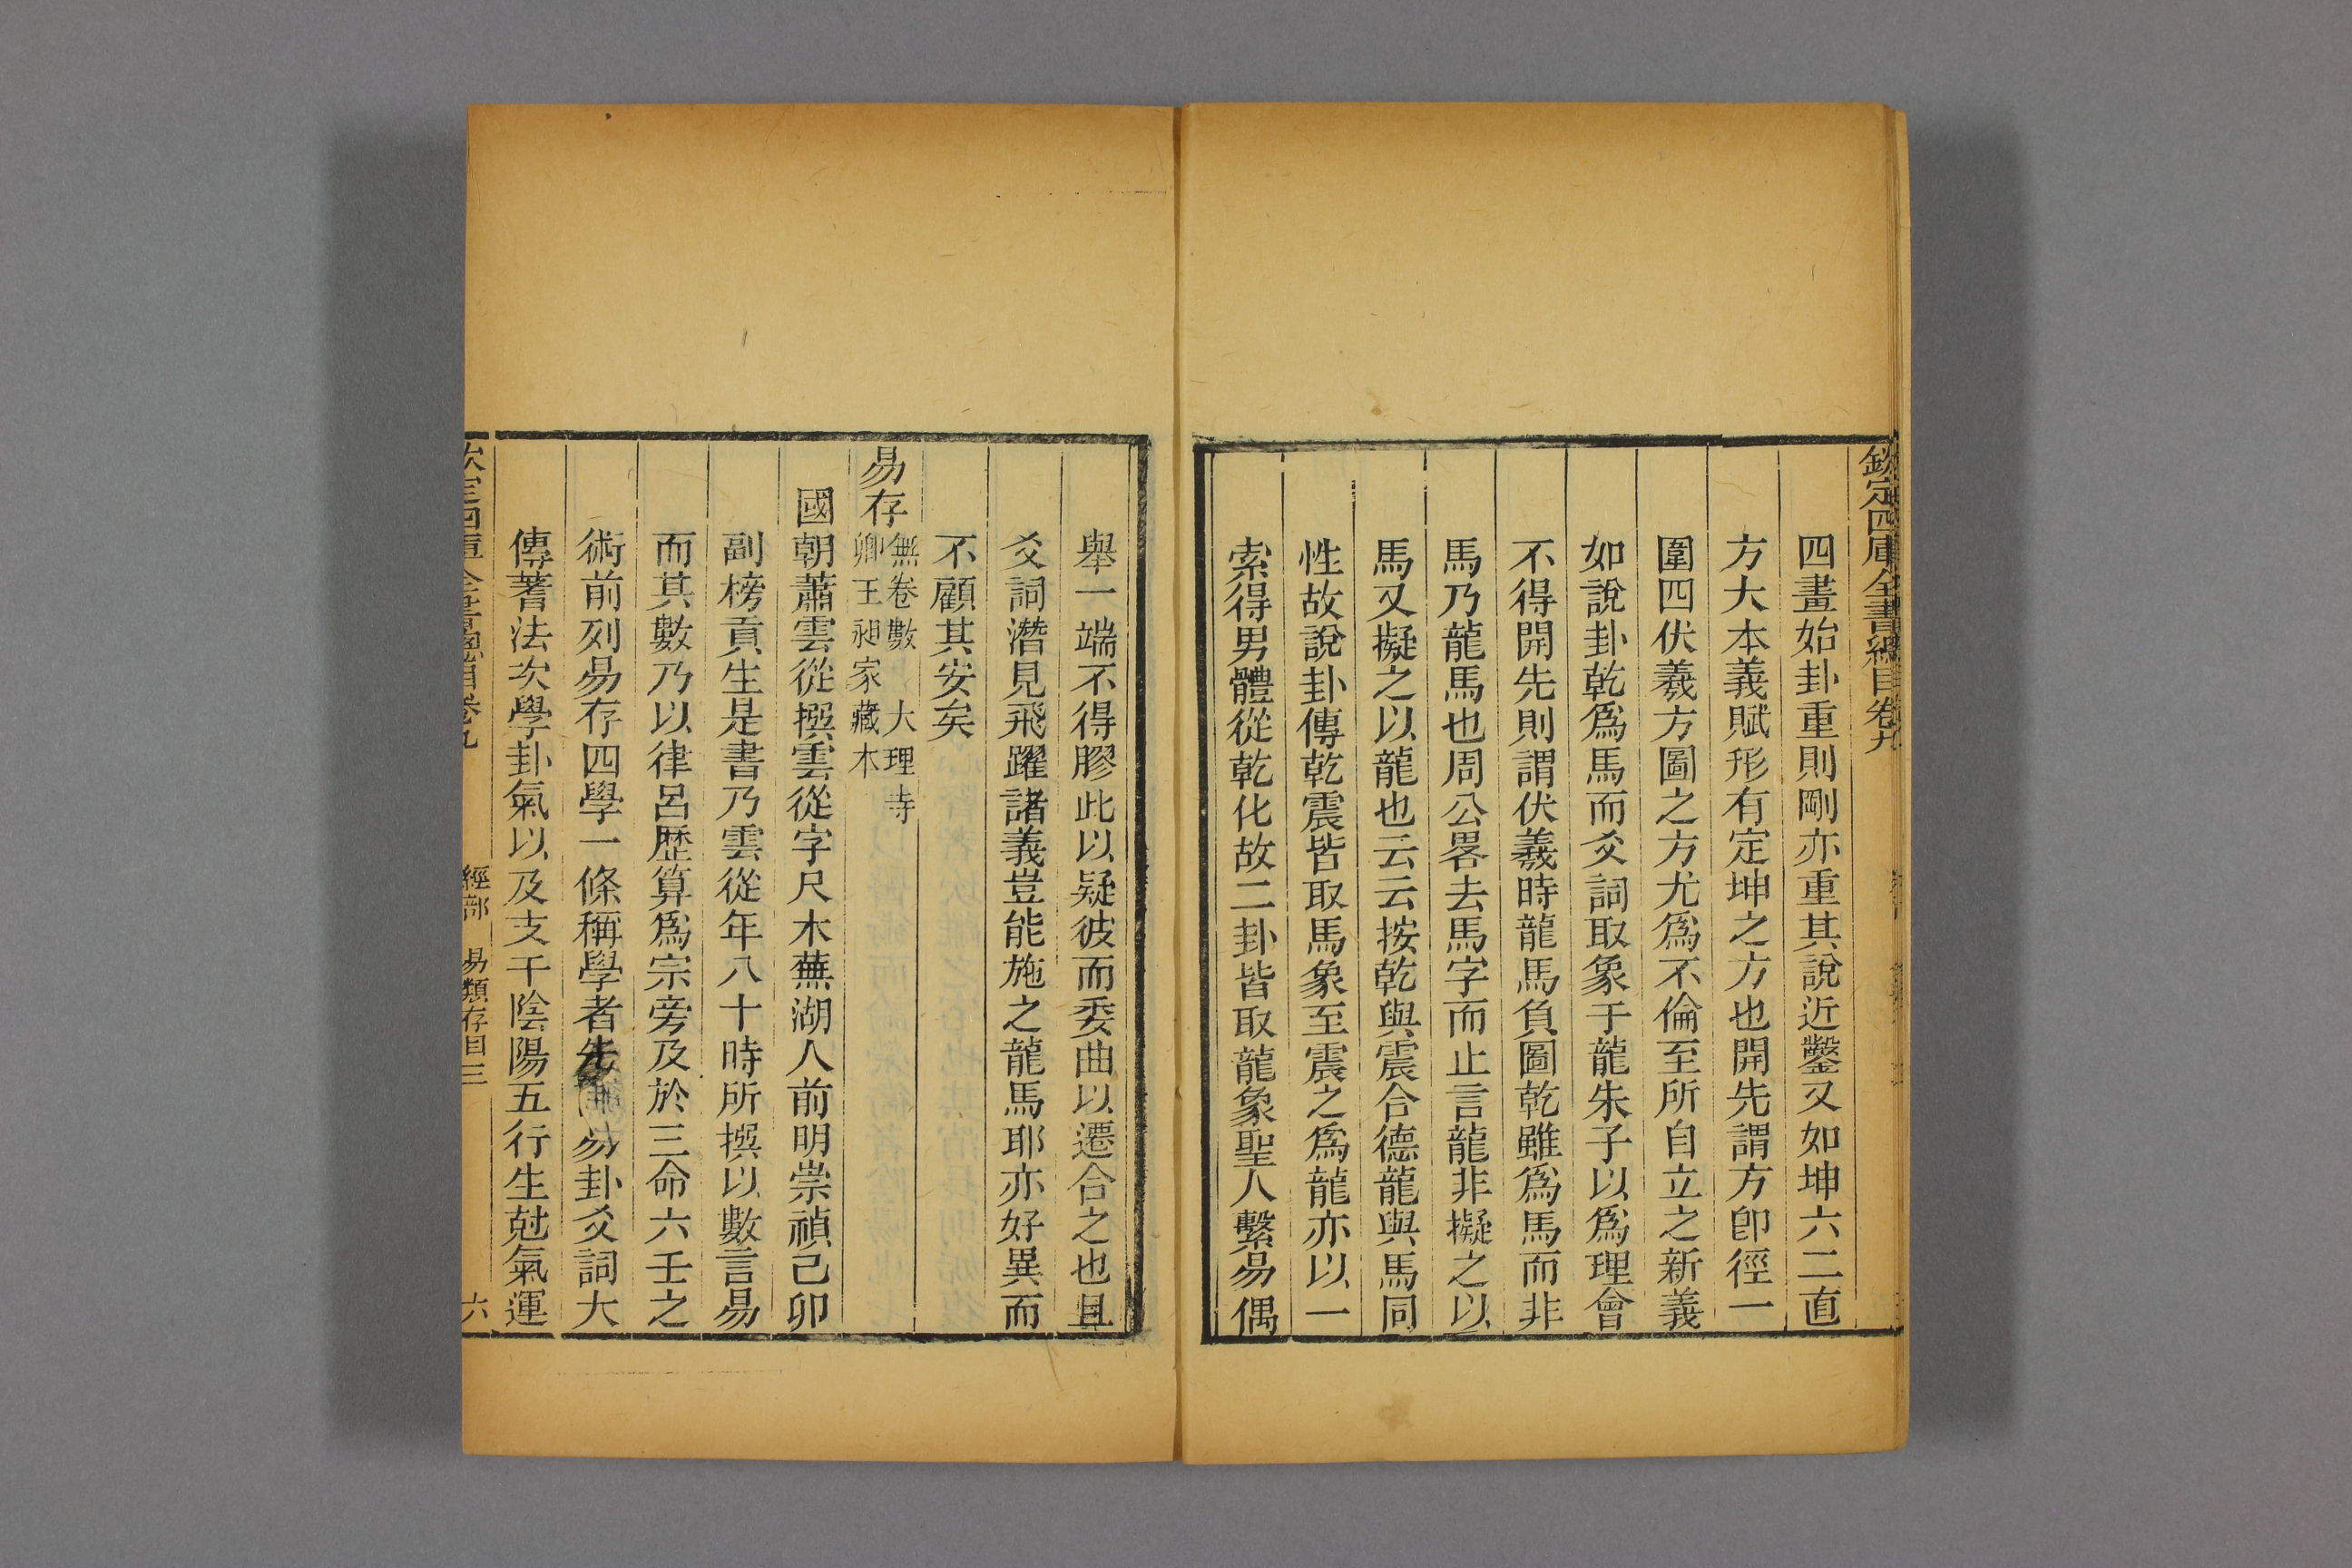 欽定四庫全書總目卷九
四畫始卦重則剛亦重其說近鑿又如坤六二直
方大本義賦形有定坤之方也開先謂方卽徑一
圍四伏羲方圖之方尤爲不倫至所自立之新義
如說卦乾爲馬而爻詞取象于龍朱子以爲理會
不得開先則謂伏羲時龍馬負圖乾雖爲馬而非
馬乃龍馬也周公畧去馬字而止言龍非擬之以
馬又擬之以龍也云云按乾與震合德龍與馬同
性故說卦傳乾震皆取馬象至震之爲龍亦以一
索得男體從乾化故二卦皆取龍象聖人繫易偶
舉一端不得膠此以疑彼而委曲以遷合之也且
爻詞潛見飛躍諸義豈能施之龍馬耶亦好異而
不顧其安矣
易存
無卷數 大理寺
卿王昶家藏本
國朝蕭雲從撰雲從字尺木蕪湖人前明崇禎己卯
副榜貢生是書乃雲從年八十時所撰以數言易
而其數乃以律呂歷算爲宗旁及於三命六壬之
術前列易存四學一條稱學者先易卦爻詞大
傳蓍法次學卦氣以及支干陰陽五行生尅氣運
欽定四庫全書總目卷九
經部 易類存目三
六